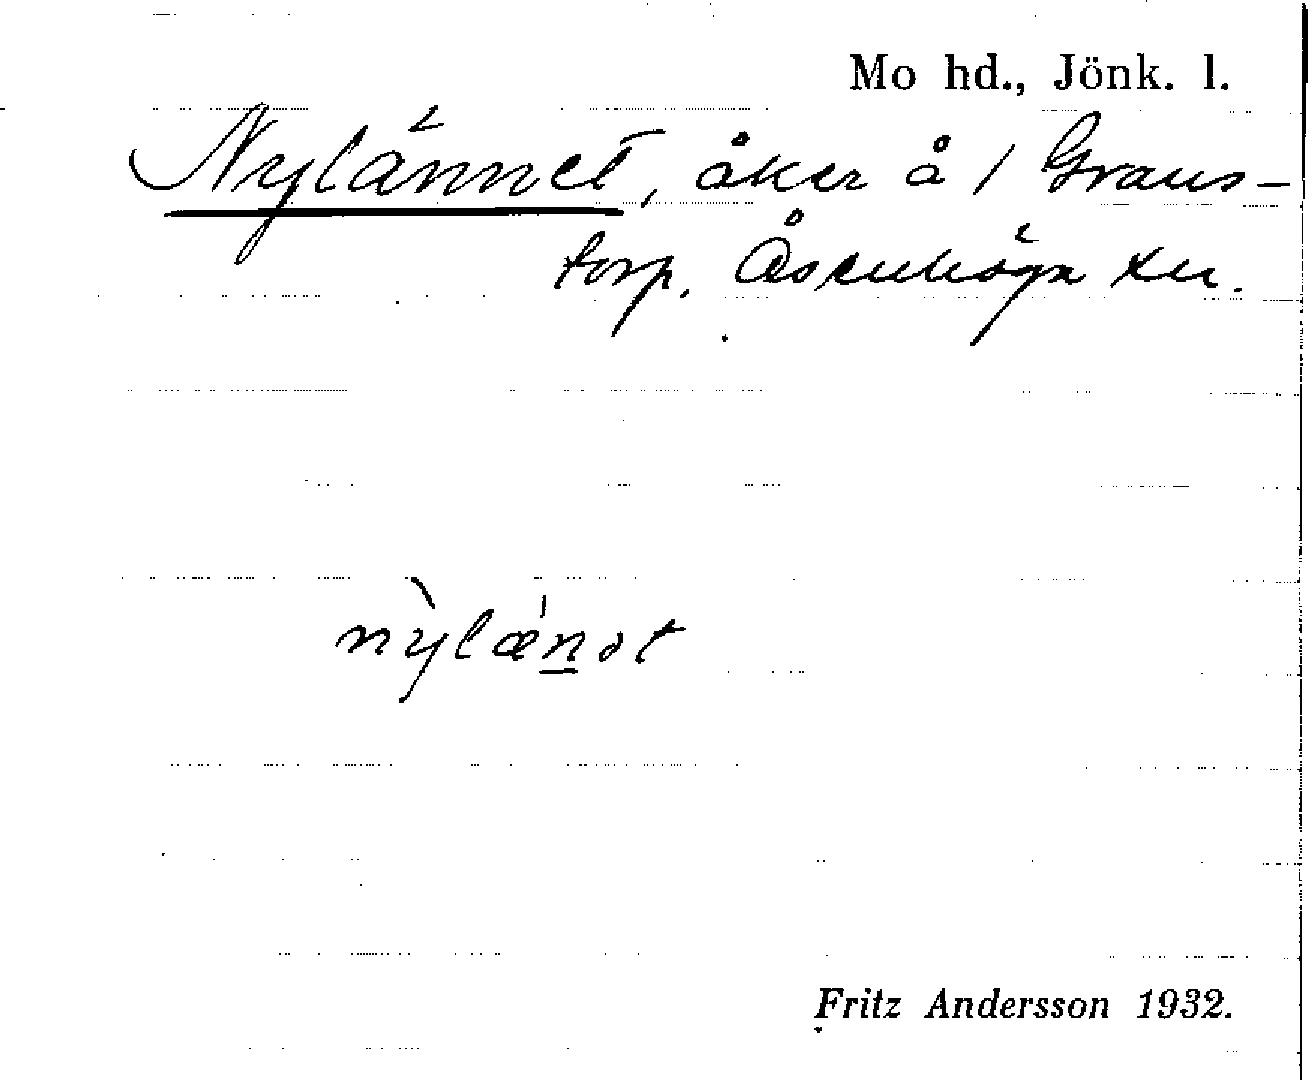 Mo hd., Jönk. l.
Nylännet, åker å 1 Grans-
torp. Åsenhöga sn.
nỳlæ̍n̲ət
Fritz Andersson 1932.